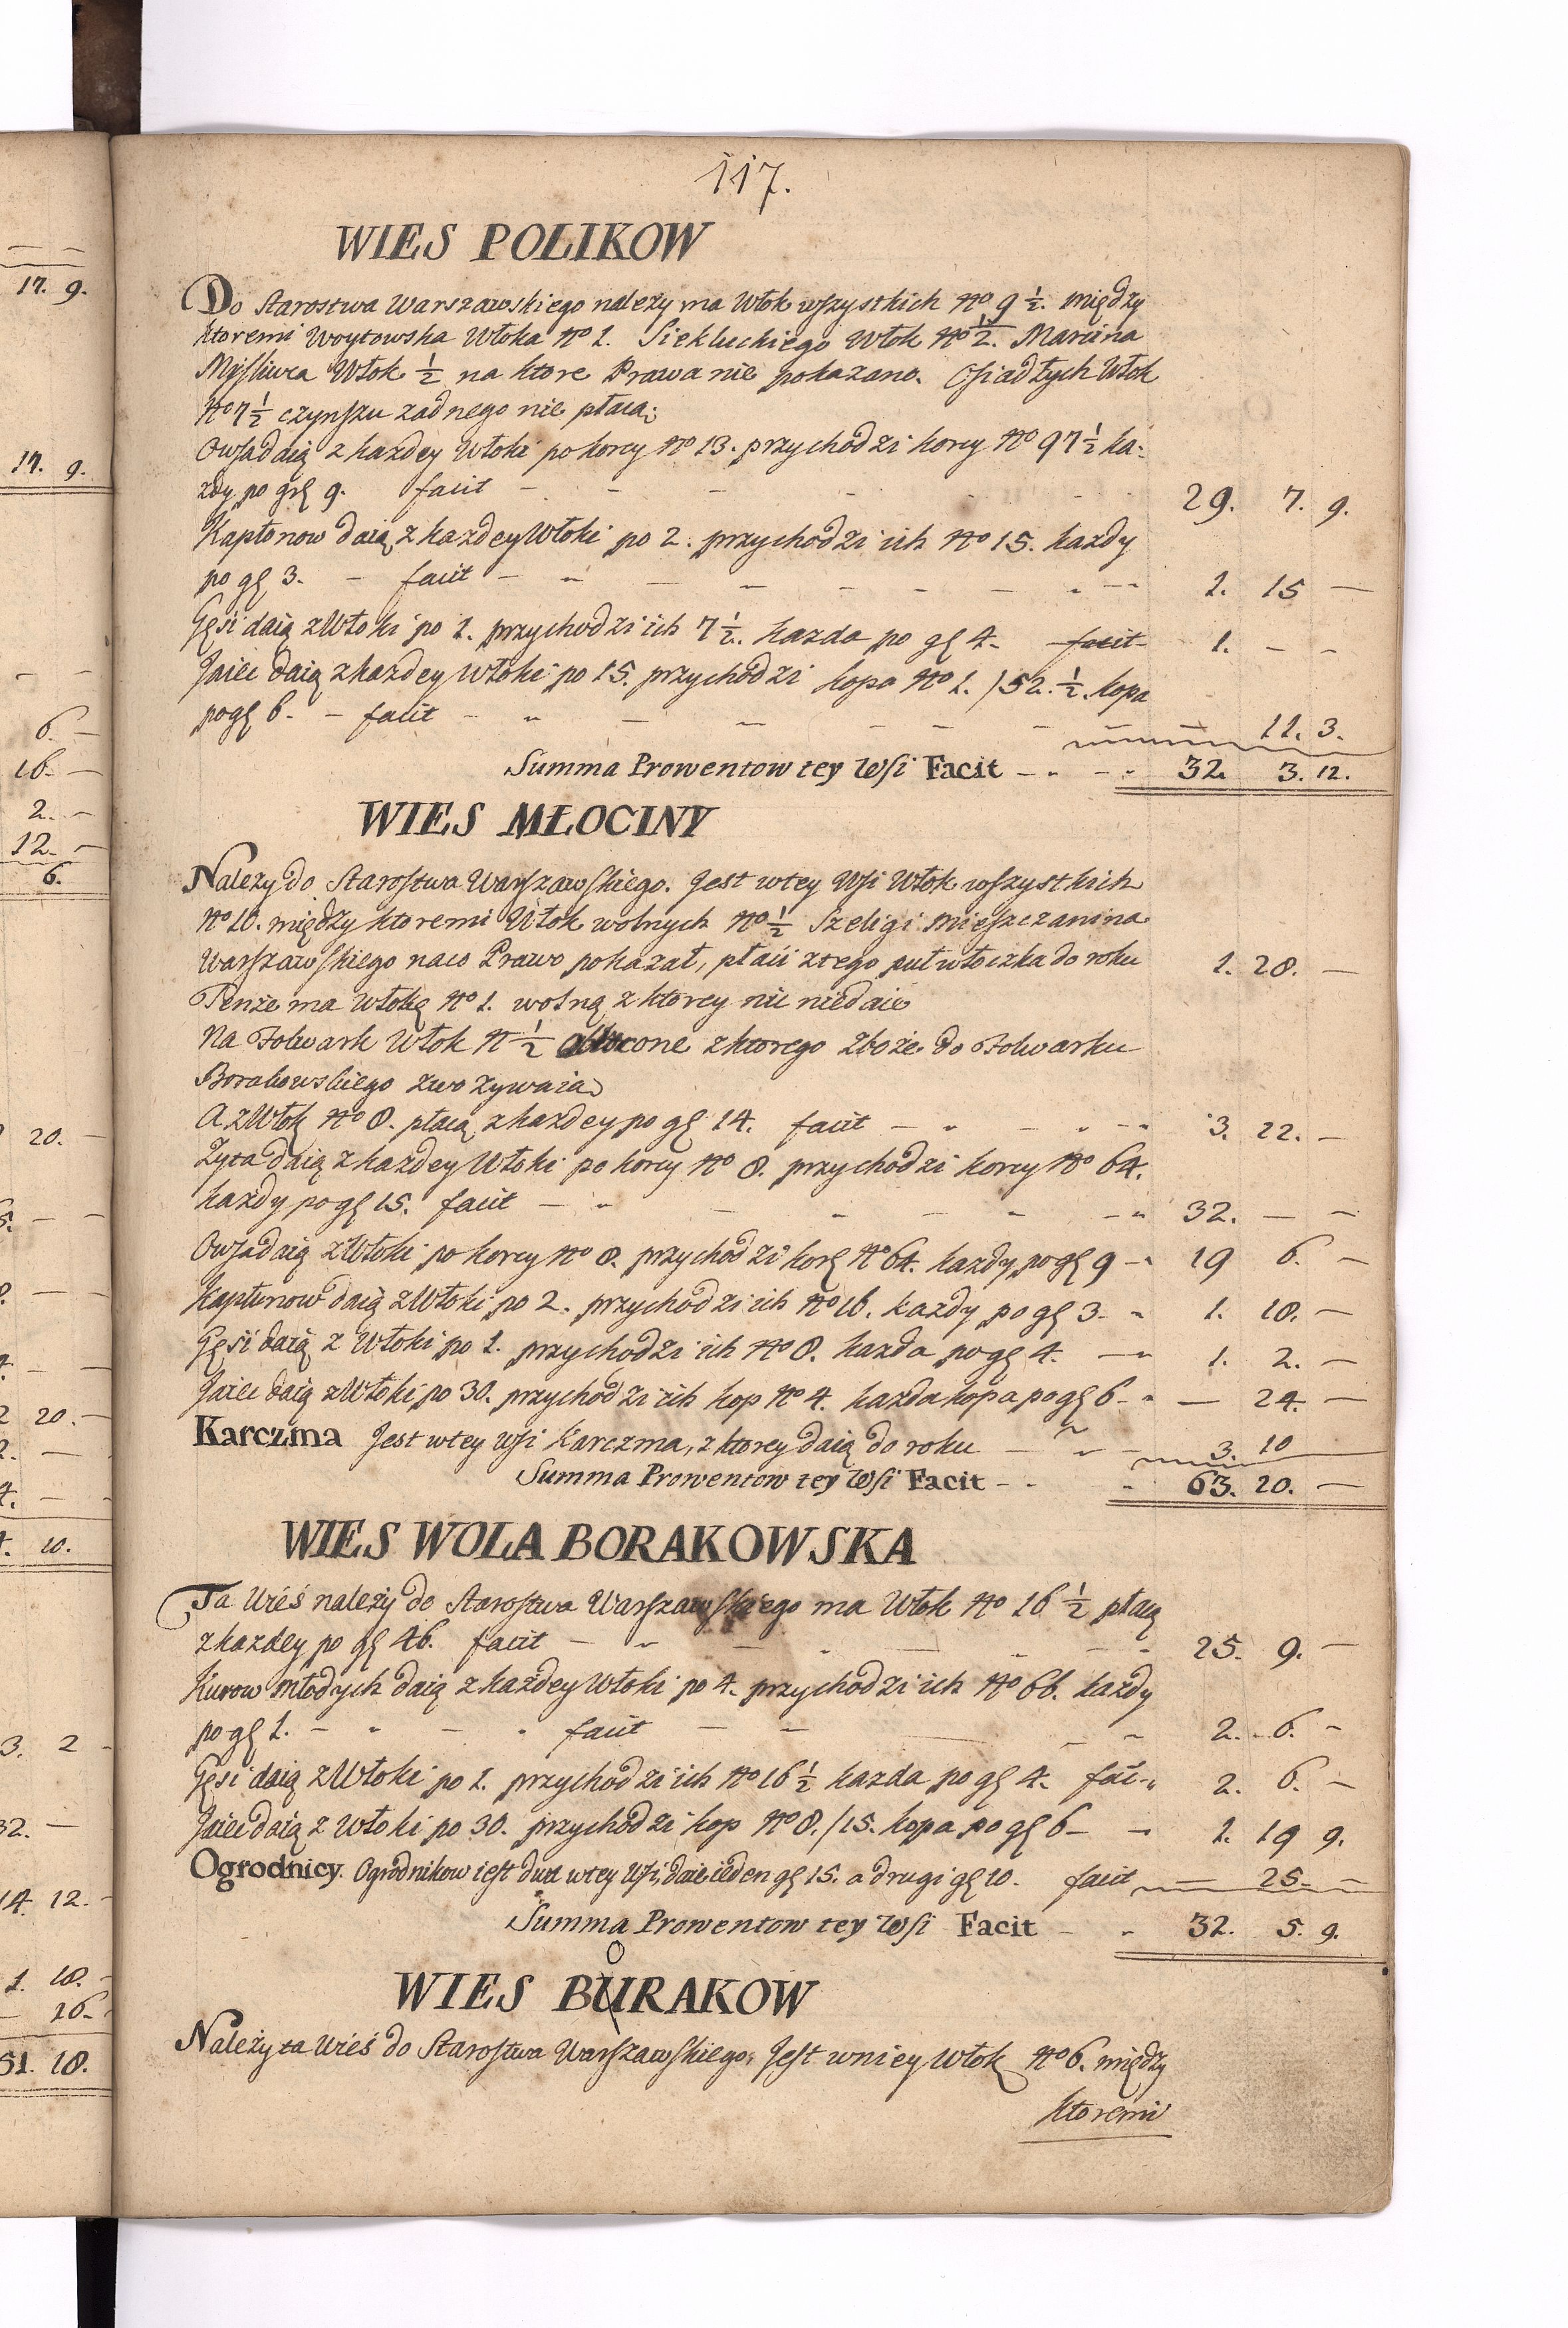 117.
WIES POLIKOW
Do Starostwa Warszawskiego nalezy ma Włok wszystkich No 9 1/2. między
ktoremi Woytowska Włoka No 1. Siekluckiego Włok No 1/2. Marcina
Myśliwca Włok 1/2 na ktore Prawa nie pokazano. Osiadłych Włok
No 7 1/2 czynszu zadnego nie płacą
Owsa daią z kazdey Włoki po korcy No 13. przychodzi korcy No 97 1/2 ka:
zdy po grę 9. facit - - - 29. 7. 9.
Kapłonow daią z kazdey Włoki po 2. przychodzi ich No 15. kazdy
po gę 3. - facit - - - 1. 15 —
Gęsi daią z Włoki po 1. przychodzi ich 7 1/2. kazda po gę 4. facit 1. - -
Jaiec daią z kazdey Włoki po 15. przychodzi kopa No 1. /52. 1/2. kopa
po gę 6. - facit - - - 11. 3.
Summa Prowentow tey Wsi Facit - - 32. 3. 12.
WIES MŁOCINY
Nalezy do Starostwa Warszawskiego. Jest w tey Wsi Włok wszystkich
No 10. między ktoremi Włok wolnych No 1/2 Szeligi Mieszczanina
Warszawskiego na co Prawo pokazał, płaci z tego puł włoczka do roku 1. 20. —
Tenze ma Włokę No 1. wolną z ktorey nic niedaie
Na Folwark Włok N 1/2 z ktorego zboże do Folwarku
Borakowskiego zwozywaią
A z Włok No 8. płacą z kazdey po gę 14. facit — 3. 22. —
Zyta daią z kazdey Włoki po korcy No 8. przychodzi korcy No 64.
kazdy po gę 15. facit — 32. — —
Owsa daią z Włoki po korcy No 8. przychodzi korę No 64. kazdy po gę 9 - 19 6. —
Kapłonow daią z Włoki po 2. przychodzi ich No 16. kazdy po gę 3. - 1. 18. —
Gęsi daią z Włoki po 1. przychodzi ich No 8. kazda po gę 4. — 1. 2. —
Jaiec daią z Włoki po 30. przychodzi ich kop No 4. kazda kopa po gę 6 - — 24. —
Karczma Jest w tey Wsi Karczma, z ktorey daią do roku — 3. 10
Summa Prowentow tey Wsi Facit - - 63. 20. —
WIES WOLA BORAKOWSKA
Ta Wieś należy do Starostwa Warszawskiego ma Włok No 16 1/2 płacą
z kazdey po gę 46. facit — 25. 9. —
Kurow Młodych daią z kazdey Włoki po 4. przychodzi ich No 66. kazdy
po gę 1. - - facit — 2. 6. -
Gęsi daią z Włoki po 1. przychodzi ich No 16 1/2 kazda po gę 4. fac- 2. 6. —
Jaiec daią z Włoki po 30. przychodzi kop No 8. /15. kopa po gę 6 - 1. 19 9.
Ogrodnicy. Ogrodnikow iest dwa w tey Wsi, daie ieden gę 15. a drugi gę 10. facit — 25. —
Summa Prowentow tey Wsi Facit - 32. 5. 9.
O
WIES BURAKOW
Należy ta Wieś do Starostwa Warszawskiego, Jest w niey Włok No 6. między
ktoremi